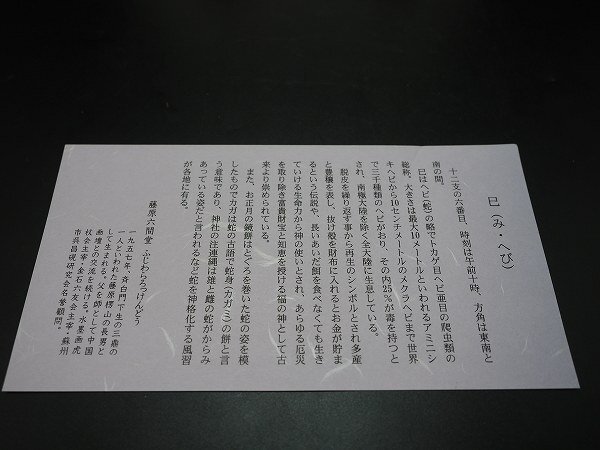 巳（み・へび）
十二支の六番目、時刻は午前十時、方角は東南と
南の間。
巳はヘビ（蛇）の略でトカゲ目ヘビ亜目の爬虫類の
総称、大きさは最大10メートルといわれるアミニシ
キヘビから10センチメートルのメクラヘビまで世界
で三千種類のヘビがおり、その内25％が毒を持つと
され、南極大陸を除く全大陸に生息している。
脱皮を繰り返す事から再生のシンボルとされ多産
と豊穣を表し、抜け殻を財布に入れるとお金が貯ま
るという伝説や、長いあいだ餌を食べなくても生き
ていける生命力から神の使いとされ、あらゆる厄災
を取り除き富貴財宝と知恵を授ける福の神として古
来より崇められている。
また、お正月の鏡餅はとぐろを巻いた蛇の姿を模
したものでカガは蛇の古語で蛇身（カガミ）の餅と言
う意味であり、神社の注連縄は雄と雌の蛇がからみ
あっている姿だと言われるなど蛇を神格化する風習
が各地に有る。
藤原六間堂 ふじわらろっけんどう
一九五七年、斉白門下生の三鼎の
一人といわれた藤原楞山の長男と
して生まれる。父を師として中国
画壇との交流を続ける。水墨画虎
杖会主宰・金石六友会主宰・蘇州
市呉昌碩研究会名誉顧問。